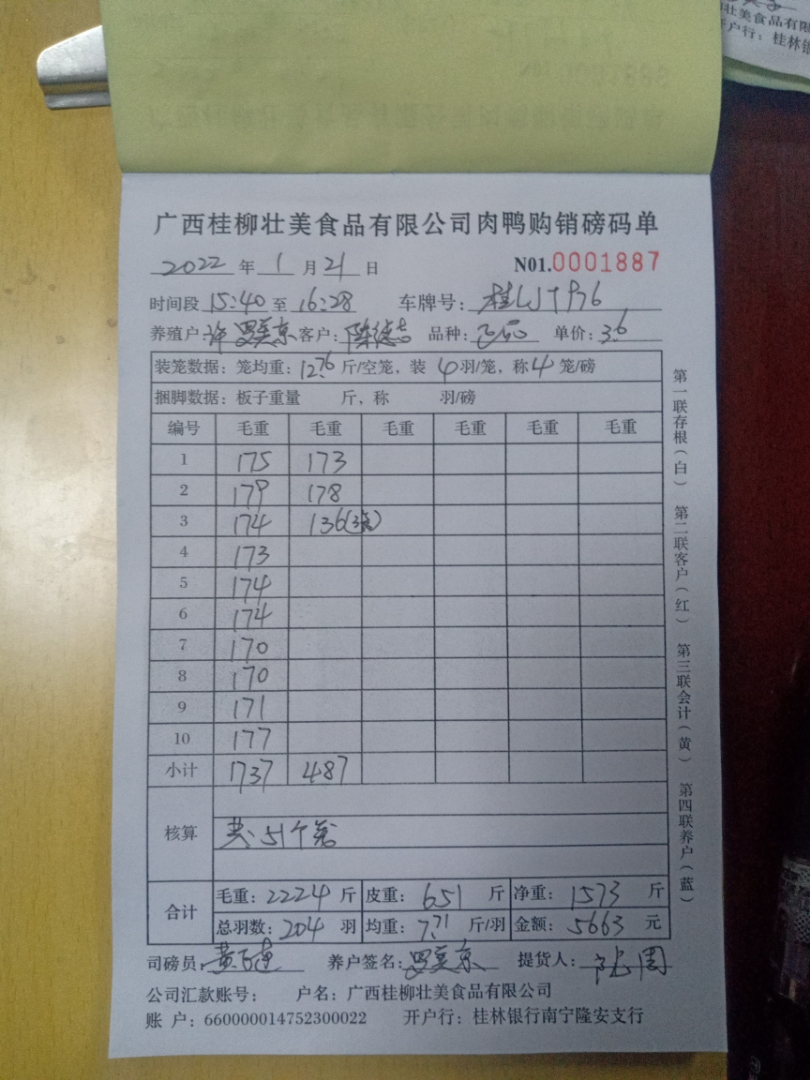 壮美食品有限
开户行：桂林银
广西桂柳壮美食品有限公司肉鸭购销磅码单
2022 年 1 月 21 日 N01.0001887
时间段 15:40 至 16:28 车牌号：
养殖户： 客户： 品种： 单价：3.6
装笼数据：笼均重：12.76 斤/空笼，装 4 羽/笼，称 4 笼/磅
捆脚数据：板子重量 斤，称 羽/磅
编号 毛重 毛重 毛重 毛重 毛重 毛重
1 175 173
2 179 178
3 174 136(3笼)
4 173
5 174
6 174
7 170
8 170
9 171
10 177
小计 1737 487
核算 共：51个笼
合计 毛重：2224 斤 皮重：651 斤 净重：1573 斤
总羽数：204 羽 均重：7.71 斤/羽 金额：5663 元
司磅员： 养户签名： 提货人：
公司汇款账号： 户名：广西桂柳壮美食品有限公司
账 户：660000014752300022 开户行：桂林银行南宁隆安支行
第一联存根（白） 第二联客户（红） 第三联会计（黄） 第四联养户（蓝）